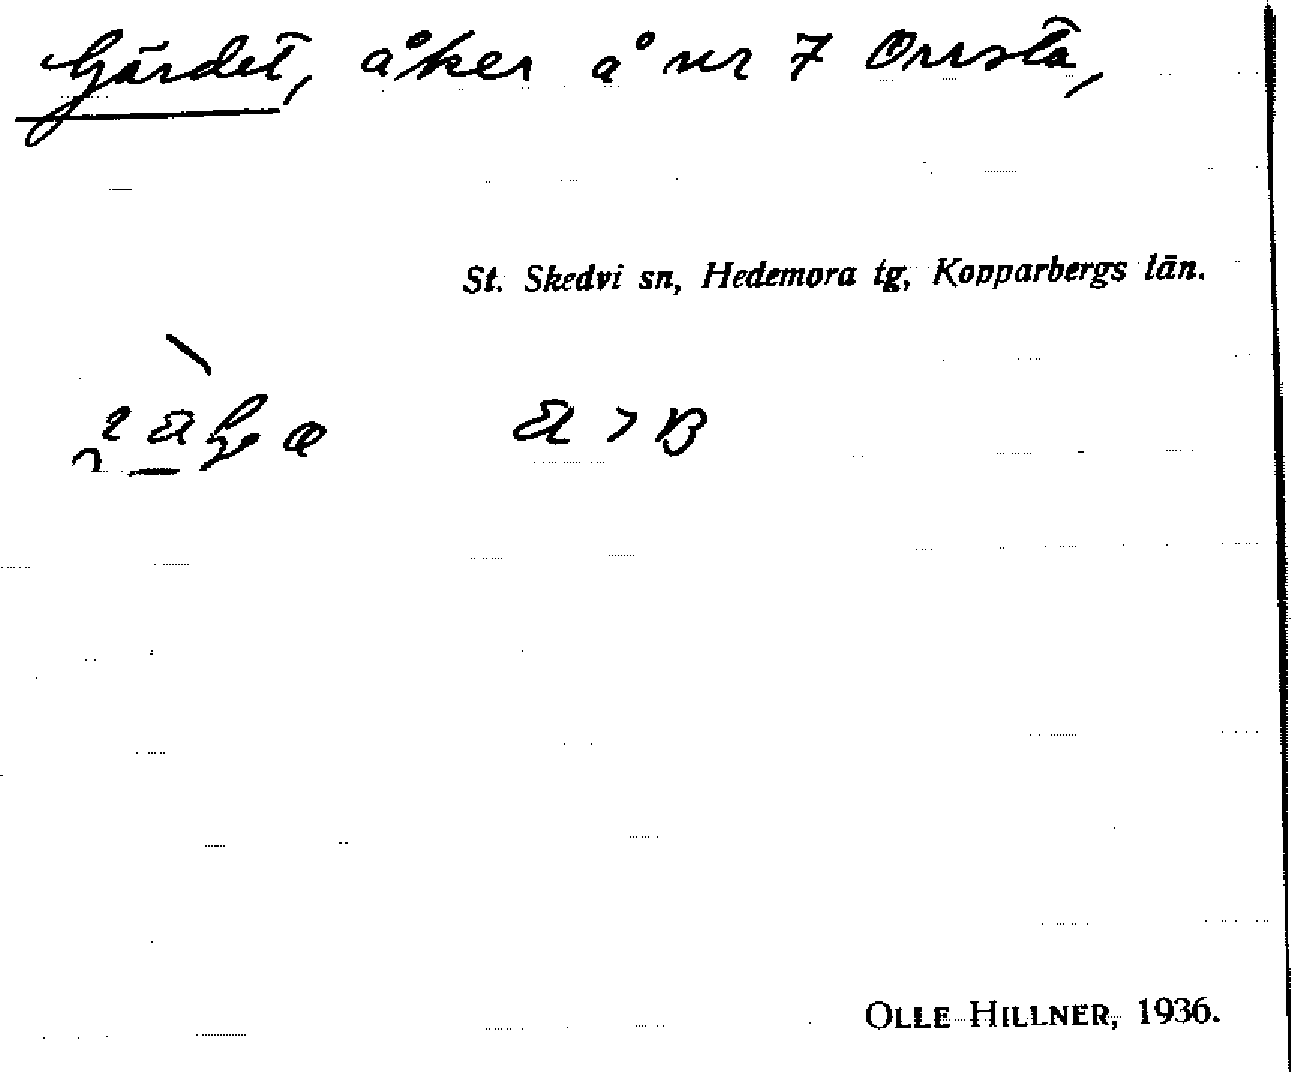 Gärdet, åker å nr 7 Orrsta,
St. Skedvi sn, Hedemora tg, Kopparbergs län.
OLLE HILLNER, 1936.